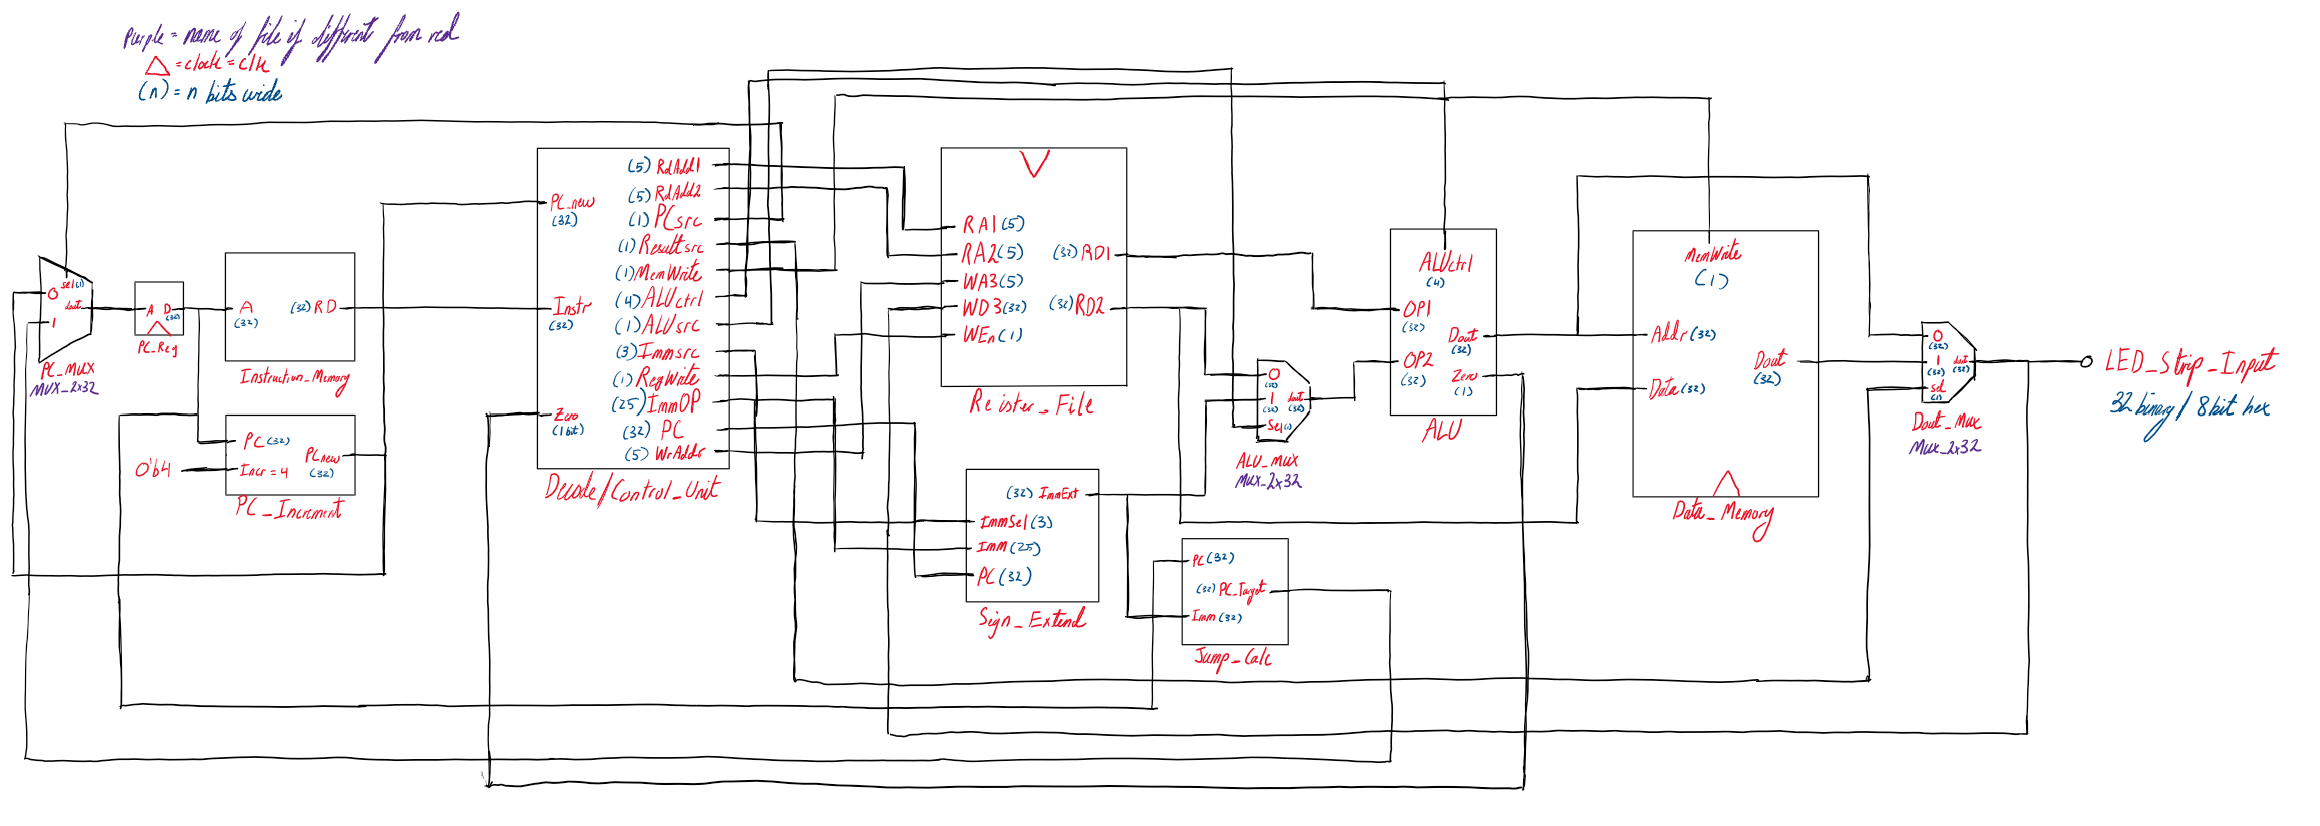 Purple = name of file if different from red
△ = clock = clk
(n) = n bits wide
sel(1)
0
dout
1
PC_MUX
MUX_2x32
A D
(32)
PC_Reg
A
(32)
(32) RD
Instruction_Memory
PC(32)
0'b4
Incr = 4
PCnew
(32)
PC_Increment
PC_new
(32)
Instr
(32)
Zero
(1 bit)
(5) RdAdd1
(5) RdAdd2
(1) PCsrc
(1) Resultsrc
(1) MemWrite
(4) ALUctrl
(1) ALUsrc
(3) Immsrc
(1) RegWrite
(25) ImmOP
(32) PC
(5) WrAddr
Decode/Control_Unit
RA1(5)
RA2(5)
WA3(5)
WD3(32)
WEn(1)
(32) RD1
(32) RD2
Reister_File
(32) ImmExt
ImmSel(3)
Imm(25)
PC(32)
Sign_Extend
PC(32)
(32) PC_Target
Imm(32)
Jump_Calc
0
(32)
1
(32)
dout
(32)
Sel(1)
ALU_MUX
MUX_2x32
ALUctrl
(4)
OP1
(32)
Dout
(32)
OP2
(32)
Zero
(1)
ALU
MemWrite
(1)
Addr(32)
Dout
(32)
Data(32)
Data_Memory
0
(32)
1
(32)
dout
(32)
sel
(1)
Dout_Mux
Mux_2x32
LED_Strip_Input
32 binary / 8bit hex